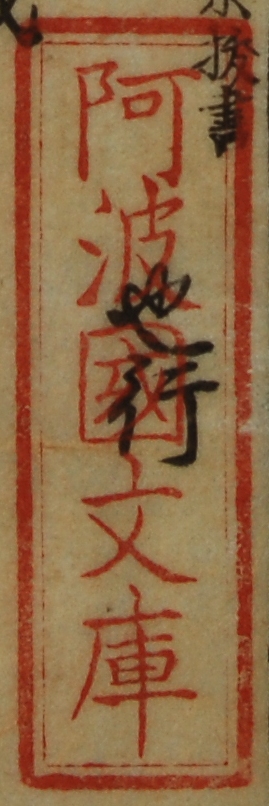 按書
也行
阿波國文庫